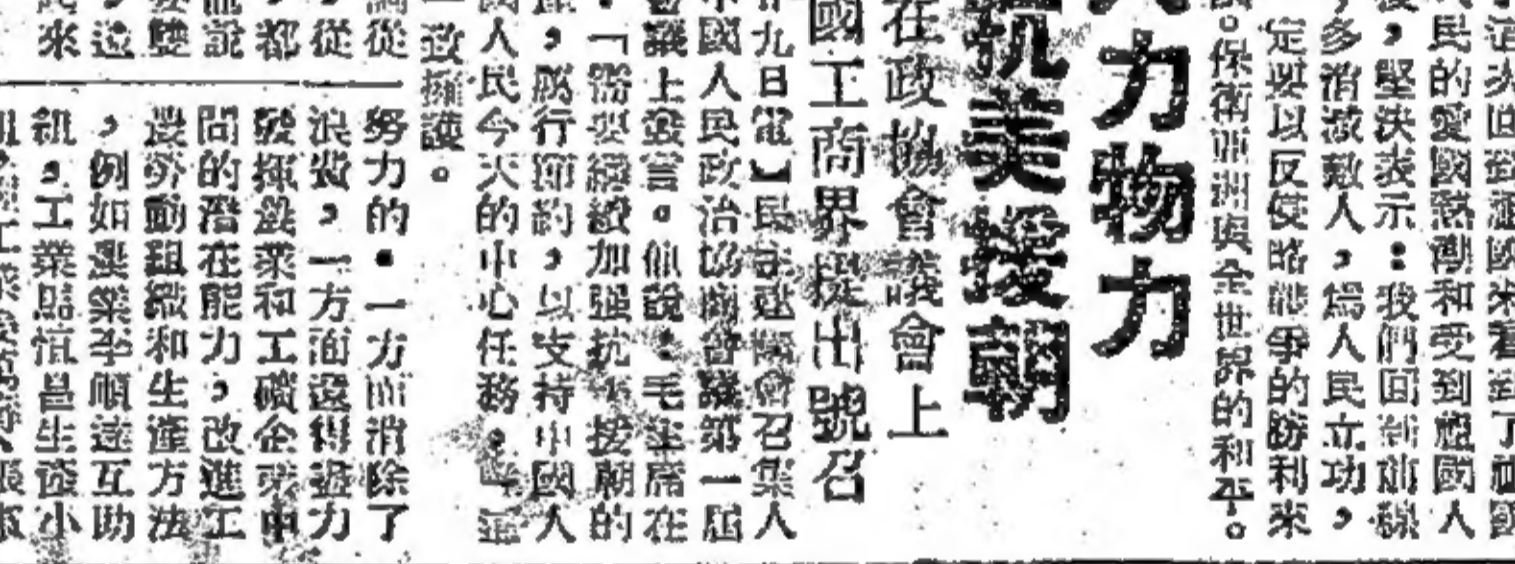 回到祖國來看到了祖國
民的愛國熱潮和受到祖國人
後，堅決表示：我們回到前線
多消滅敵人，爲人民立功，
定要以反侵略戰爭的勝利來
。保衛亞洲與全世界的和平。
力物力
抗美援朝
在政協會議上
國工商界提出號召
九日電】民主建國會召集人
中國人民政治協商會議第一屆
會議上發言。他說：毛主席在
「需要繼續加强抗美援朝的
，厲行節約，以支持中國人
國人民今天的中心任務。」這
一致擁護。
從
從
，都
說
雙
這
來
努力的。一方面消除了
浪費，一方面還得盡力
發揮農業和工礦企業中
間的潛在能力，改進工
農勞動組織和生產方法
，例如農業李順達互助
組，工業馬恒昌生產小